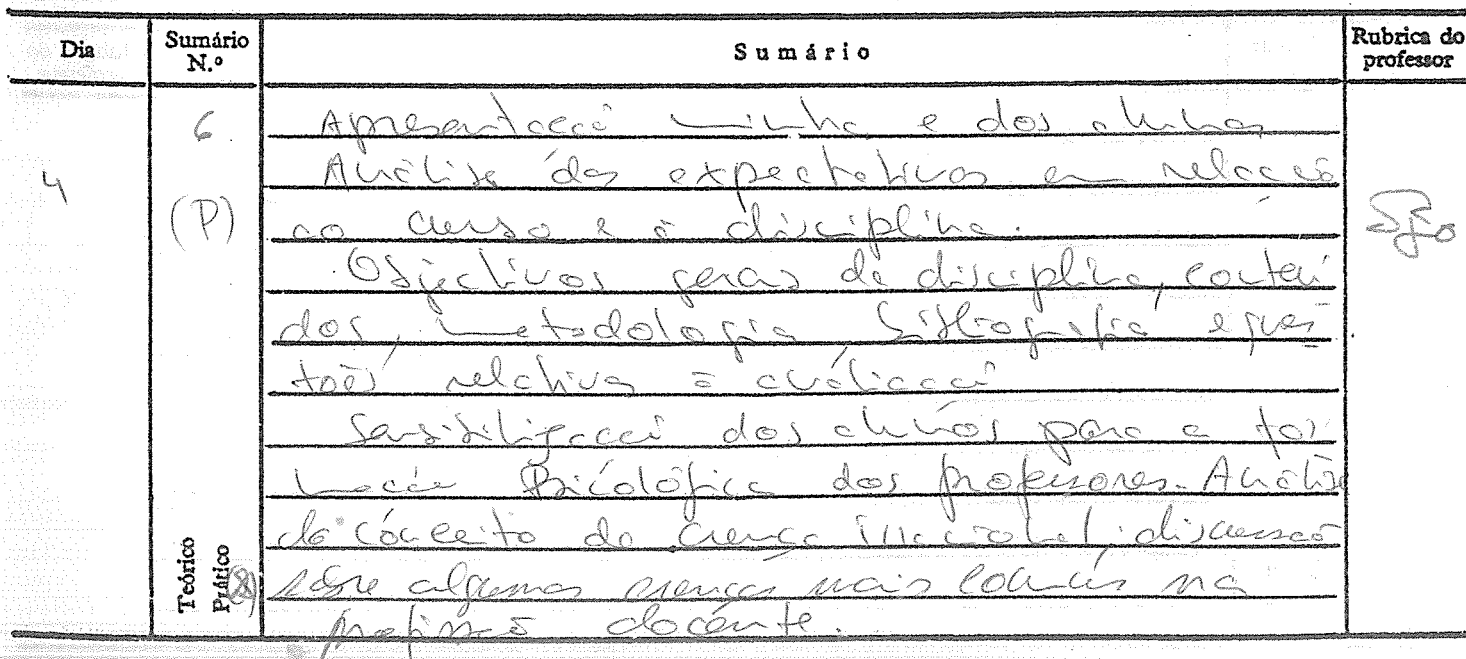 Dia
Sumário N.º
Sumário
Rubrica do professor
4
6
(P)
Teórico
Prático
(8)
Apresentação minha e dos alunos
Análise das expectativas em relação
ao curso e à disciplina.
Objectivos gerais da disciplina, conteú
dos, metodologia, bibliografia e ques
tões relativas à avaliação
Sensibilização dos alunos para a for
mação Psicológica dos professores. Análise
do conceito de crença irracional; discussão
sobre algumas crenças mais comuns na
profissão docente.